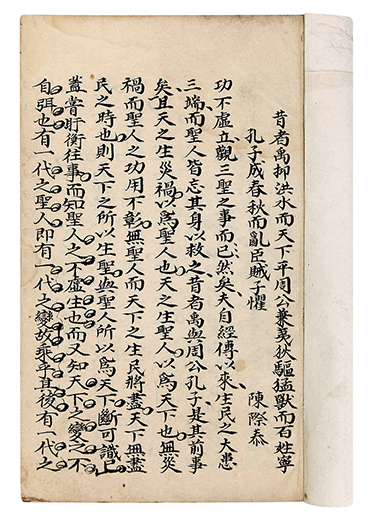 昔者禹抑洪水而天下平周公兼夷狄驅猛獸而百姓寧
孔子成春秋而亂臣賊子懼
陳際泰
功不虛立觀三聖之事而已然矣夫自經傳以來生民之大患
三端而聖人皆忘其身以救之昔者禹與周公孔子是其前事
矣且天之生災禍以爲聖人也天之生聖人以爲天下也無災
禍而聖人之功用不彰無聖人而天下之生民將盡天下無盡
民之時也則天下之所以生聖與聖人所以爲天下斷可識已
蓋嘗盱衡往事而知聖人之不虛生也而又知天下之變之不
自弭也有一代之聖人即有一代之變故乘乎其後有一代之